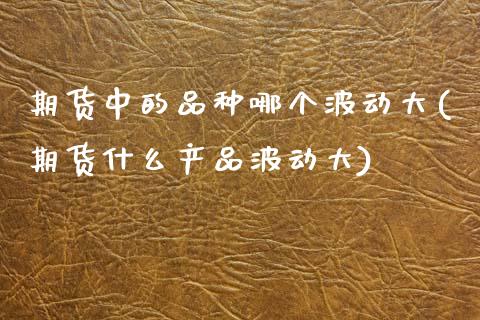 期货中的品种哪个波动大(
期货什么产品波动大)